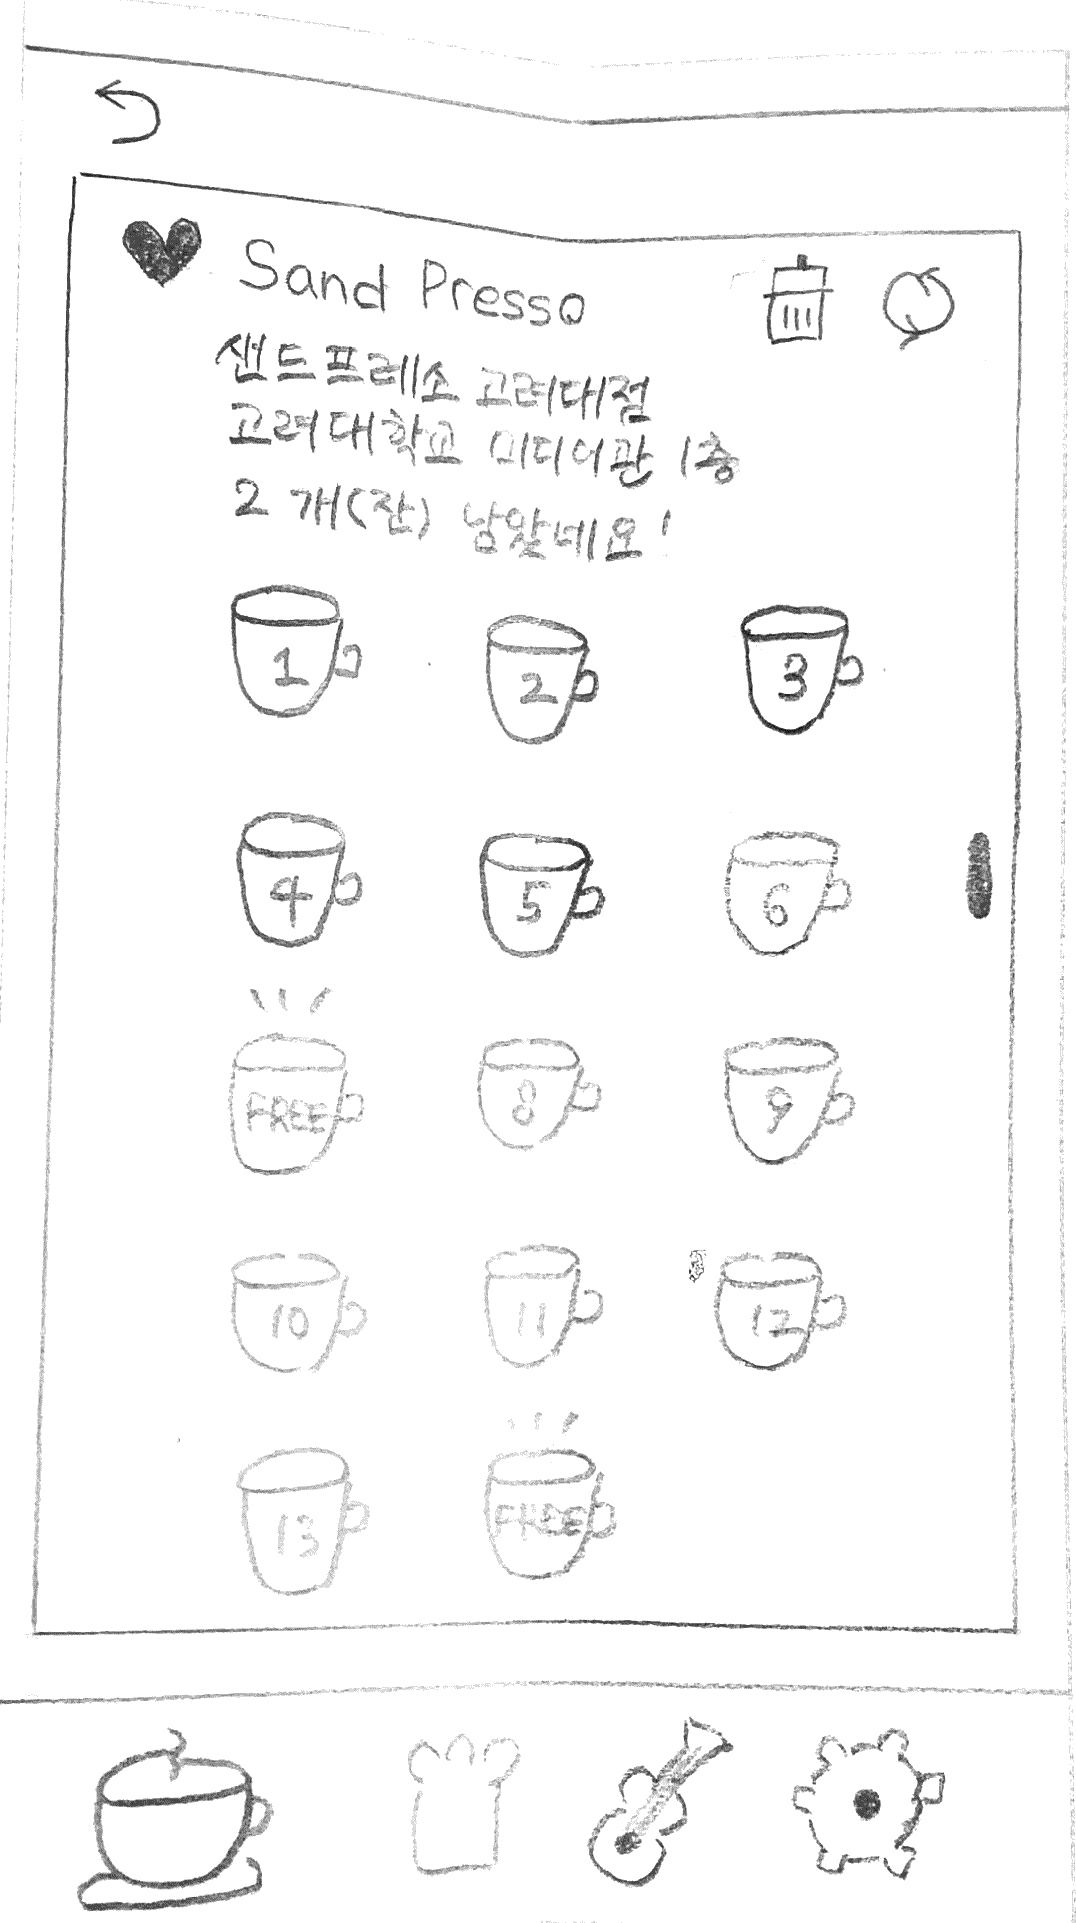 Sand Presso
샌드프레소 고려대점
고려대학교 미디어관 1층
2 개(잔) 남았네요!
1 2 3
4 5 6
FREE 8 9
10 11 12
13 FREE